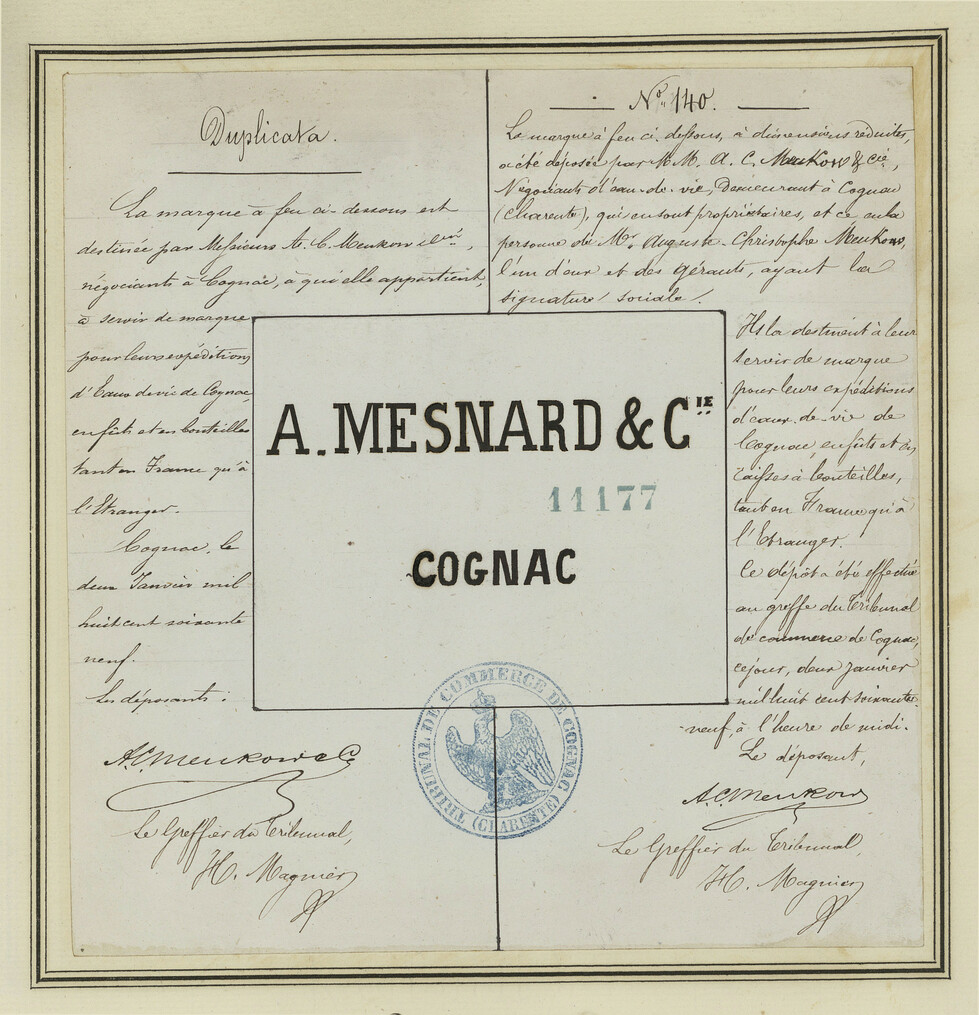 Duplicata.
La marque à feu ci-dessous est
destinée par Messieurs A. C. Meukow & Cie,
négociants à Cognac, à qui elle appartient,
à servir de marque
pour leurs expéditions
d'Eaux de vie de Cognac,
en fûts et en bouteilles
tant en France qu'à
l'Etranger.
Cognac, le
deux Janvier mil
huit cent soixante
neuf.
Les déposants :
A.C. Meukow & C
Le Greffier du Tribunal,
H. Magnier
No. 140.
La marque à feu ci-dessous, à dimensions réduites,
a été déposée par M M. A. C. Meukow & Cie,
Négociants d'eau-de-vie, Demeurant à Cognac
(Charente), qui en sont propriétaires, et ce en la
personne de Mr. Auguste-Christophe Meukow,
l'un d'eux et des gérants, ayant la
signature sociale.
Ils la destinent à leur
servir de marque
pour leurs expéditions
d'eaux-de-vie de
Cognac, en fûts et en
caisses à bouteilles,
tant en France qu'à
l'Etranger.
Ce dépôt a été effectué
au greffe du Tribunal
de commerce de Cognac,
ce jour, deux janvier
mil huit cent soixante-
neuf, à l'heure de midi.
Le déposant,
A.C. Meukow
Le Greffier du Tribunal,
H. Magnier
A. MESNARD & CIE
11177
COGNAC
TRIBUNAL DE COMMERCE DE COGNAC
(CHARENTE)